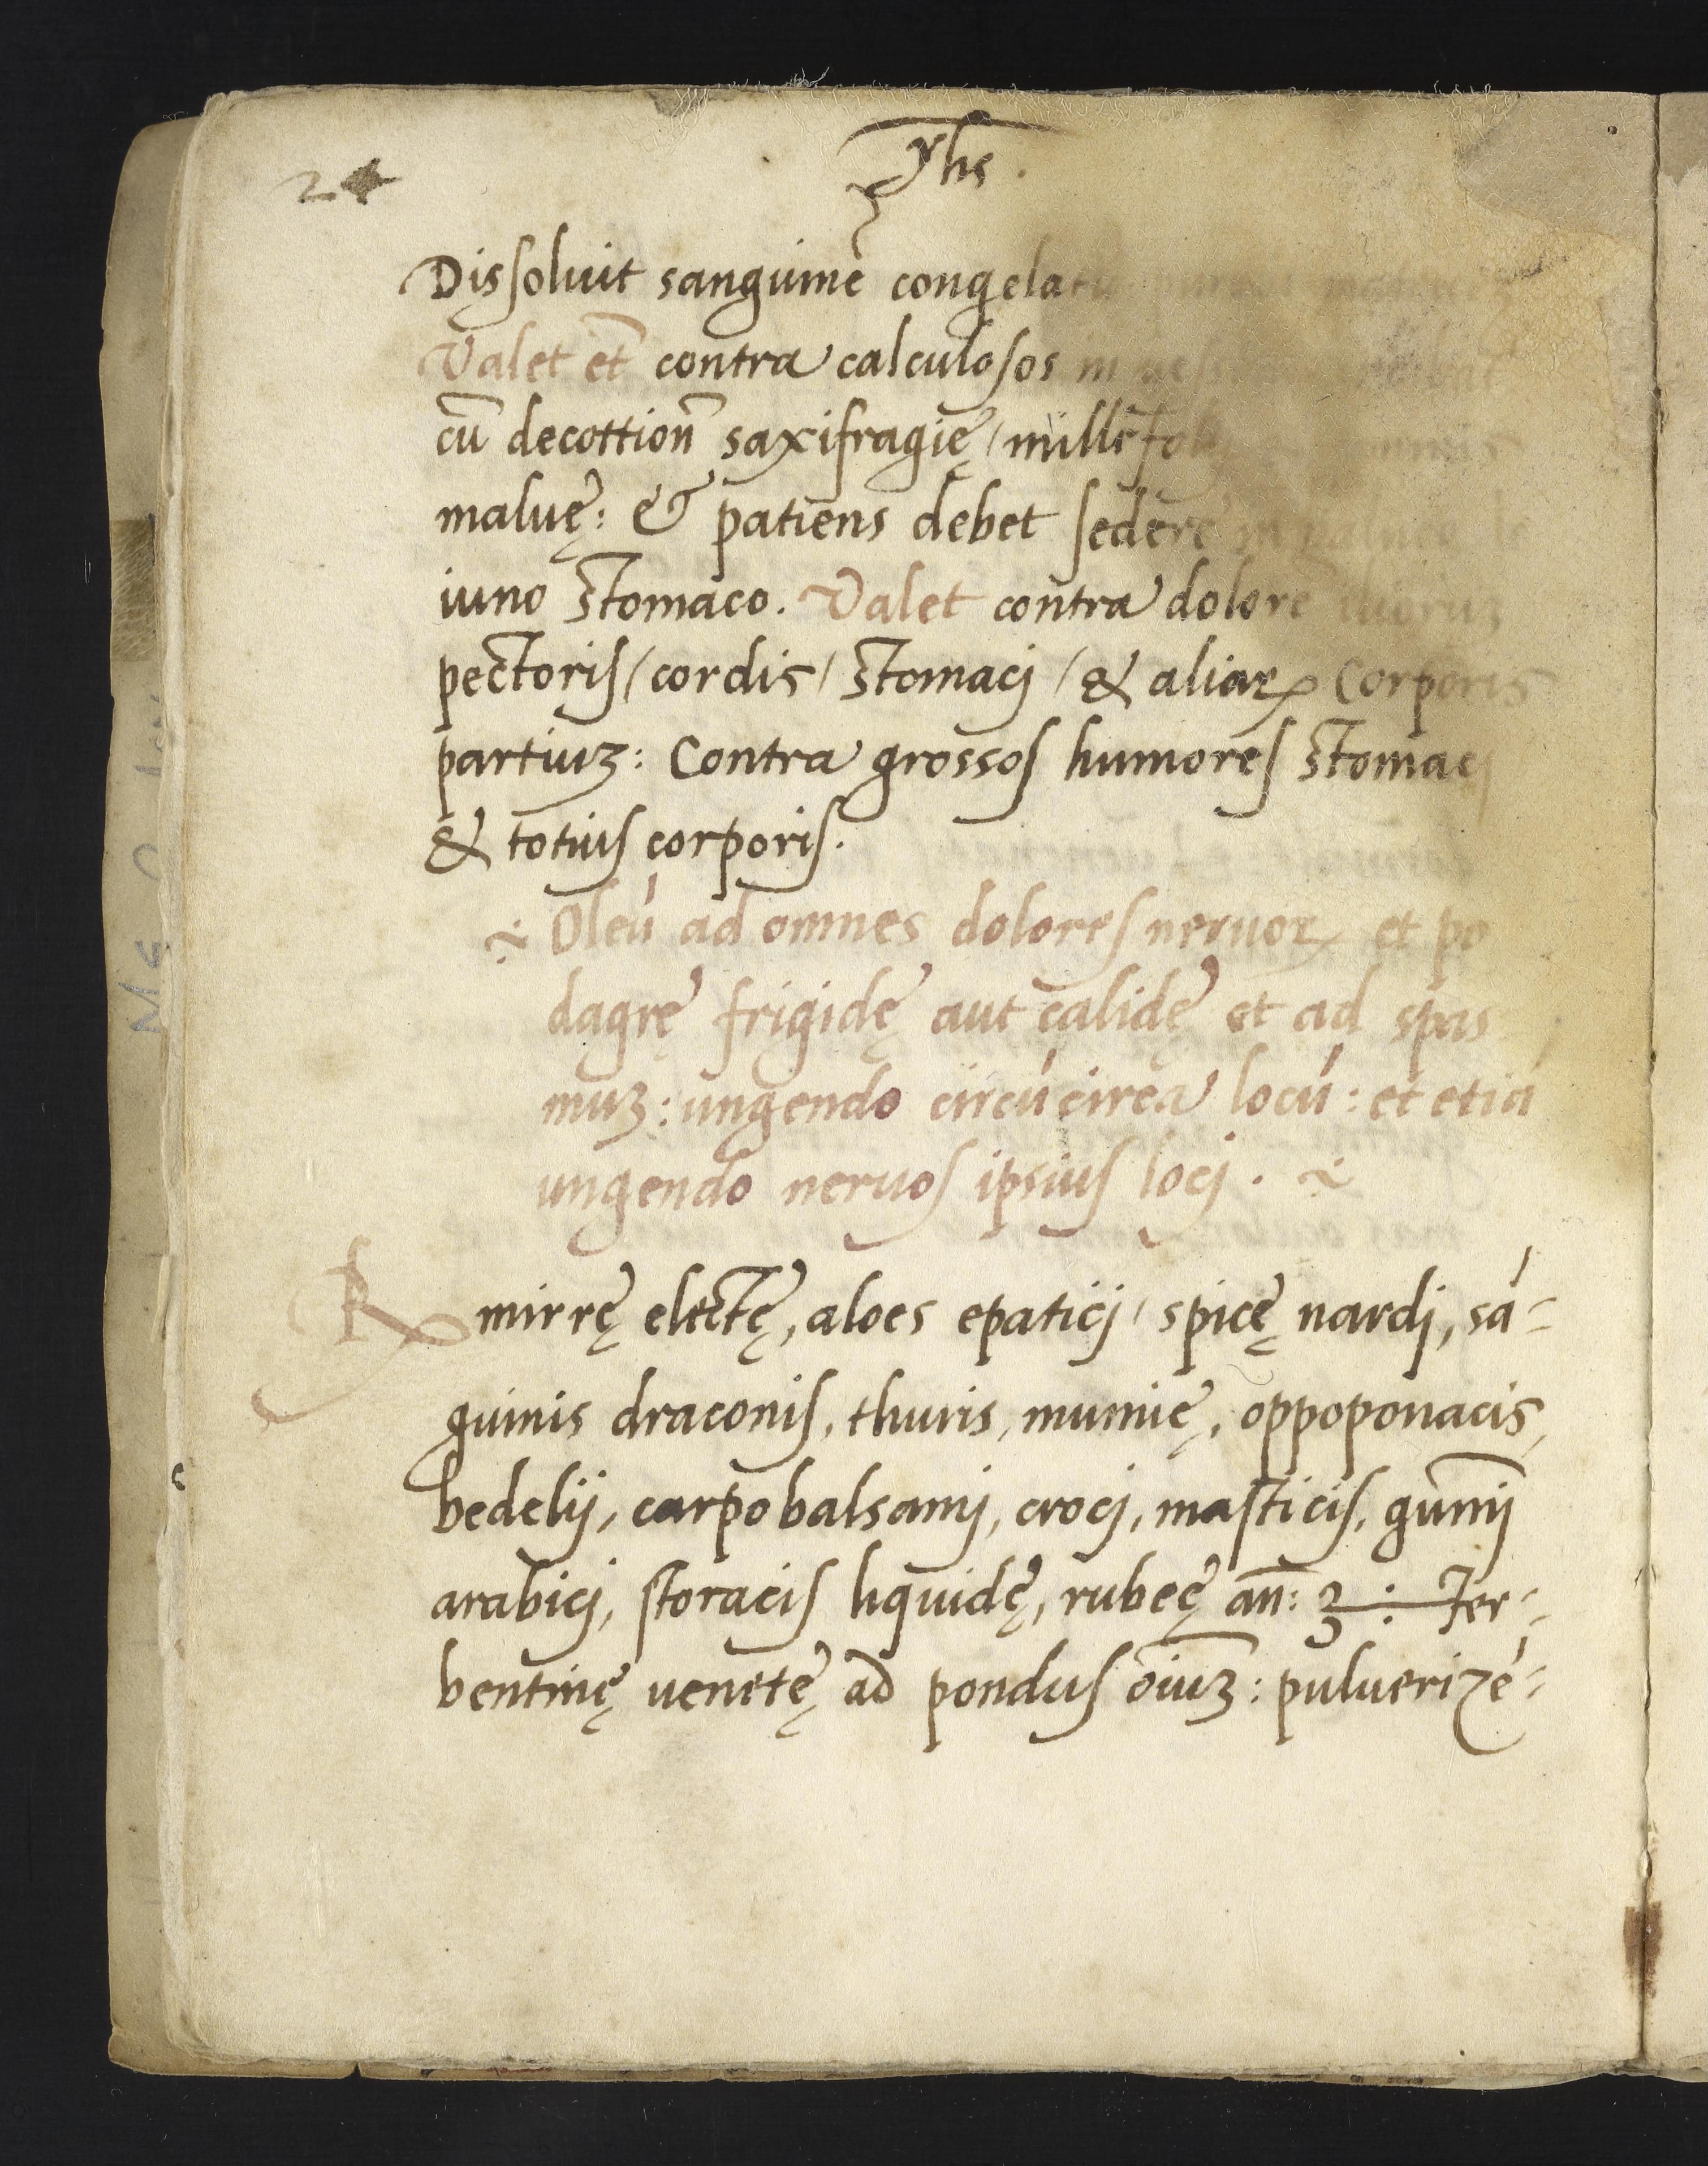 yhs
2
Dissoluit sanguinē congelatū
Valet et̄ contra calculosos in
cū decottion̄ saxifragię / millefol
maluę: & patiens debet sedere in balneo
iuno stomaco. Valet contra dolorē
pectoris / cordis / stomacj / & aliaꝝ corporis
partiuꝫ: Contra grossos humores stomacj
& totius corporis.
⁓ Oleū ad omnes dolores neruoꝝ et po
dagrę frigidę aut calidę et ad spas
muꝫ: ungendo circū circa locū: et etiā
ungendo neruos ipsius locj. ⁓
℞ mirrę electę, aloes epaticj / spicę nardj, sā-
guinis draconis, thuris, mumię, oppoponacis,
bedelij, carpobalsamj, crocj, masticis, gum̄j
arabicj, storacis liquidę, rubeę an̄: ℥ : Ter-
bentinę uenetę ad pondus oīuꝫ: pulverizē-
Ms